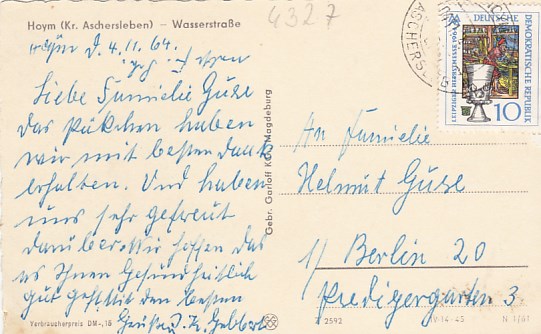 Hoym (Kr. Aschersleben) – Wasserstraße
4327
d. 4.11.64.
Liebe Familie Guse
das Päkchen haben
wir mit besten dank
erhalten. Und haben
uns sehr gefreut
darüber. Wir hoffen das
es Ihnen Gesundheitlich
gut geht. Mit den besten
Grüßen
Verbraucherpreis DM -,15
Gebr. Garloff KG, Magdeburg
DEUTSCHE
DEMOKRATISCHE REPUBLIK
LEIPZIGER HERBSTMESSE 1964
10
An Familie
Helmut Guse
1/ Berlin 20
Predigergarten 3
2592
V-14-45